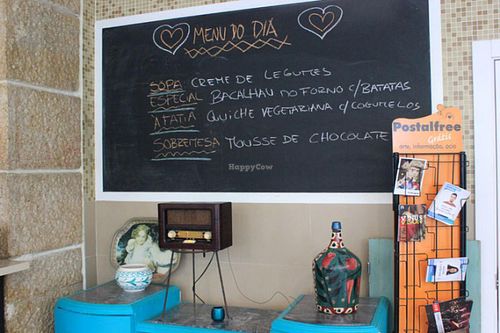 MENU DO DIA
SOPA CREME DE LEGUMES
ESPECIAL BACALHAU NO FORNO C/BATATAS
A FATIA QUICHE VEGETARIANA C/COGUMELOS
SOBREMESA MOUSSE DE CHOCOLATE
HappyCow
Postalfree
Grátis!
arte, informação, oco